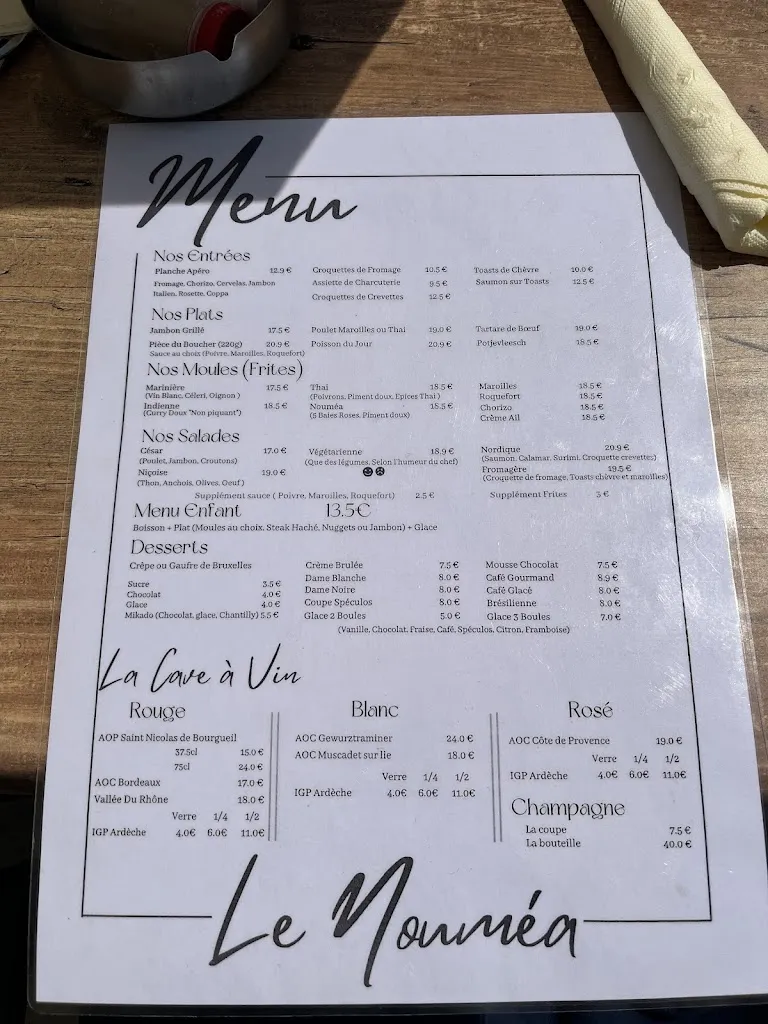 Menu
Nos Entrées
Planche Apéro 12.9 € Croquettes de Fromage 10.5 € Toasts de Chèvre 10.0 €
Fromage, Chorizo, Cervelas, Jambon Assiette de Charcuterie 9.5 € Saumon sur Toasts 12.5 €
Italien, Rosette, Coppa Croquettes de Crevettes 12.5 €
Nos Plats
Jambon Grillé 17.5 € Poulet Maroilles ou Thai 19.0 € Tartare de Bœuf 19.0 €
Pièce du Boucher (220g) 20.9 € Poisson du Jour 20.9 € Potjevleesch 18.5 €
Sauce au choix (Poivre, Maroilles, Roquefort)
Nos Moules (Frites)
Marinière 17.5 € Thai 18.5 € Maroilles 18.5 €
(Vin Blanc, Céleri, Oignon ) (Poivrons, Piment doux, Epices Thai ) Roquefort 18.5 €
Indienne 18.5 € Nouméa 18.5 € Chorizo 18.5 €
(Curry Doux "Non piquant") (5 Baies Roses, Piment doux) Crème Ail 18.5 €
Nos Salades
César 17.0 € Végétarienne 18.9 € Nordique 20.9 €
(Poulet, Jambon, Croutons) (Que des légumes, Selon l'humeur du chef) (Saumon, Calamar, Surimi, Croquette crevettes)
Niçoise 19.0 € Fromagère 19.5 €
(Thon, Anchois, Olives, Oeuf) (Croquette de fromage, Toasts chèvre et maroilles)
Supplément sauce ( Poivre, Maroilles, Roquefort) 2.5 € Supplément Frites 3 €
Menu Enfant 13.5€
Boisson + Plat (Moules au choix, Steak Haché, Nuggets ou Jambon) + Glace
Desserts
Crêpe ou Gaufre de Bruxelles Crème Brulée 7.5 € Mousse Chocolat 7.5 €
Sucre 3.5 € Dame Blanche 8.0 € Café Gourmand 8.9 €
Chocolat 4.0 € Dame Noire 8.0 € Café Glacé 8.0 €
Glace 4.0 € Coupe Spéculos 8.0 € Brésilienne 8.0 €
Mikado (Chocolat, glace, Chantilly) 5.5 € Glace 2 Boules 5.0 € Glace 3 Boules 7.0 €
(Vanille, Chocolat, Fraise, Café, Spéculos, Citron, Framboise)
La Cave à Vin
Rouge
AOP Saint Nicolas de Bourgueil
37.5cl 15.0 €
75cl 24.0 €
AOC Bordeaux 17.0 €
Vallée Du Rhône 18.0 €
Verre 1/4 1/2
IGP Ardèche 4.0€ 6.0€ 11.0€
Blanc
AOC Gewurztraminer 24.0 €
AOC Muscadet sur lie 18.0 €
Verre 1/4 1/2
IGP Ardèche 4.0€ 6.0€ 11.0€
Rosé
AOC Côte de Provence 19.0 €
Verre 1/4 1/2
IGP Ardèche 4.0€ 6.0€ 11.0€
Champagne
La coupe 7.5 €
La bouteille 40.0 €
Le Nouméa